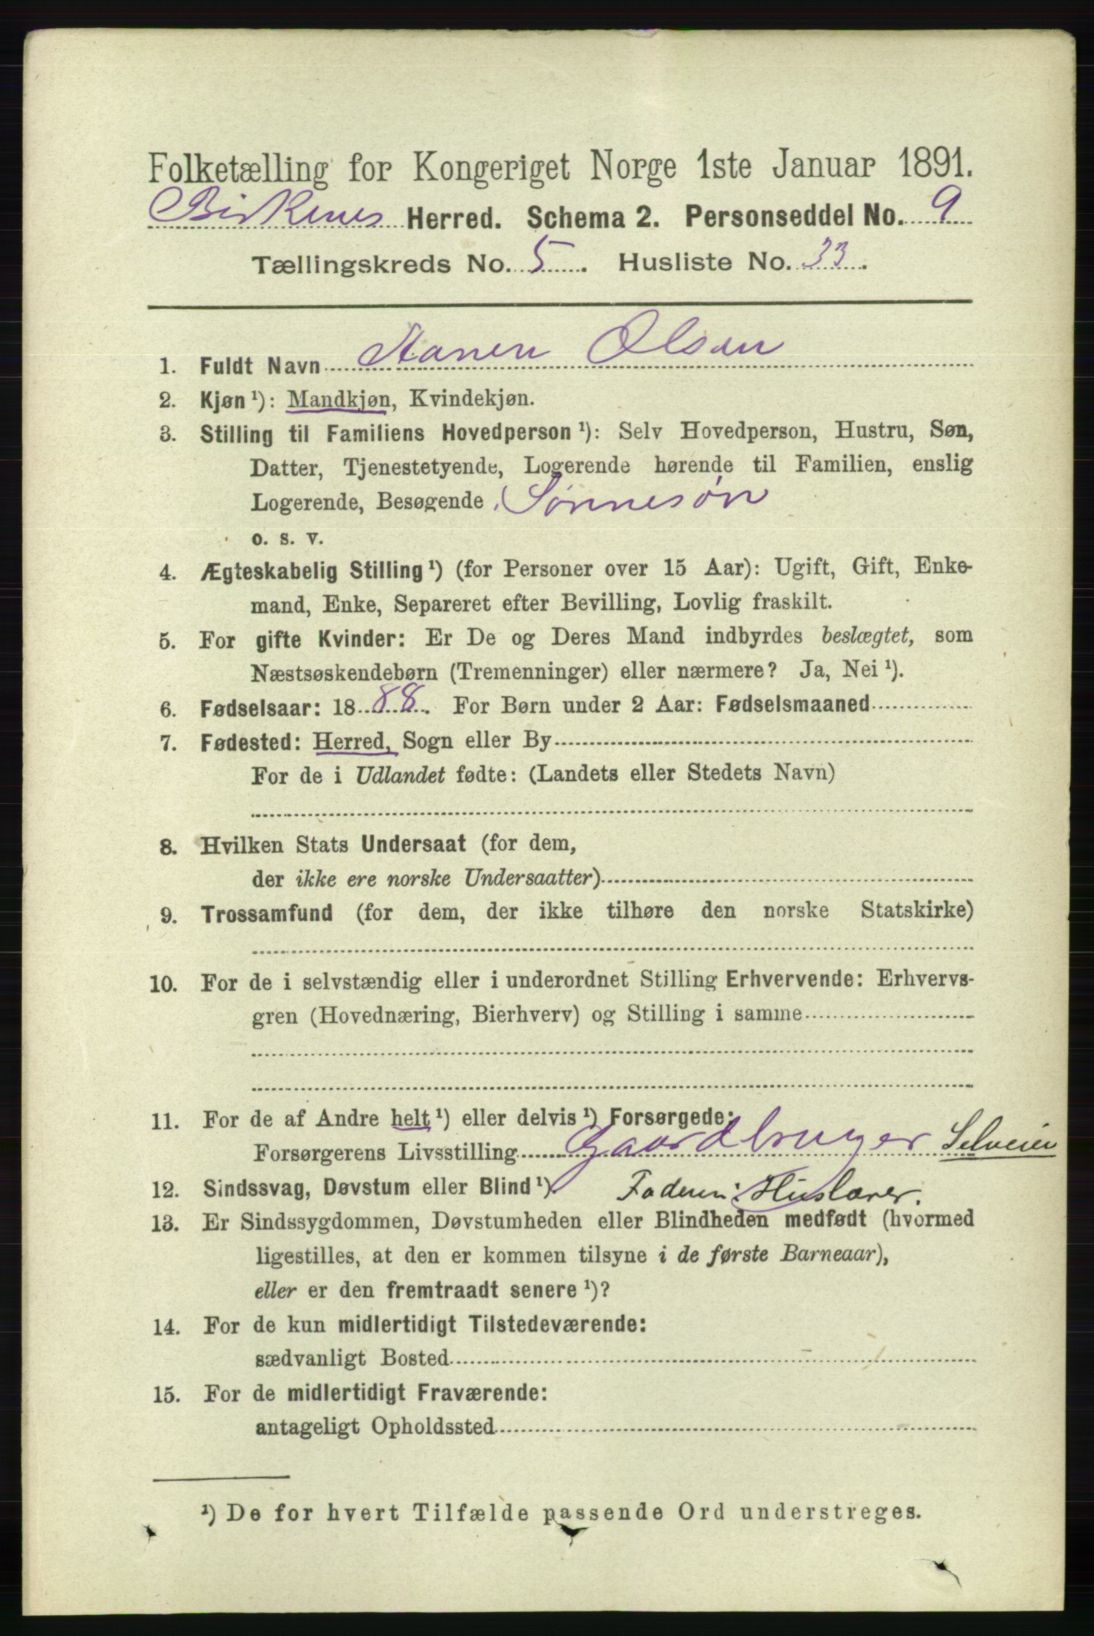 Folketælling for Kongeriget Norge 1ste Januar 1891.
Birkenes Herred. Schema 2. Personseddel No. 9
Tællingskreds No. 5. Husliste No. 33.
1. Fuldt Navn Aanen Olsen
2. Kjøn ¹): Mandkjøn, Kvindekjøn.
3. Stilling til Familiens Hovedperson ¹): Selv Hovedperson, Hustru, Søn,
Datter, Tjenestetyende, Logerende hørende til Familien, enslig
Logerende, Besøgende, Sønnesøn
o. s. v.
4. Ægteskabelig Stilling ¹) (for Personer over 15 Aar): Ugift, Gift, Enke-
mand, Enke, Separeret efter Bevilling, Lovlig fraskilt.
5. For gifte Kvinder: Er De og Deres Mand indbyrdes beslægtet, som
Næstsøskendebørn (Tremenninger) eller nærmere? Ja, Nei ¹).
6. Fødselsaar: 1888. For Børn under 2 Aar: Fødselsmaaned
7. Fødested: Herred, Sogn eller By
For de i Udlandet fødte: (Landets eller Stedets Navn)
8. Hvilken Stats Undersaat (for dem,
der ikke ere norske Undersaatter)
9. Trossamfund (for dem, der ikke tilhøre den norske Statskirke)
10. For de i selvstændig eller i underordnet Stilling Erhvervende: Erhvervs-
gren (Hovednæring, Bierhverv) og Stilling i samme
11. For de af Andre helt ¹) eller delvis ¹) Forsørgede:
Forsørgerens Livsstilling Gaardbruger Selveier
12. Sindssvag, Døvstum eller Blind ¹). Faderen: Huslærer.
13. Er Sindssygdommen, Døvstumheden eller Blindheden medfødt (hvormed
ligestilles, at den er kommen tilsyne i de første Barneaar),
eller er den fremtraadt senere ¹)?
14. For de kun midlertidigt Tilstedeværende:
sædvanligt Bosted
15. For de midlertidigt Fraværende:
antageligt Opholdssted
¹) De for hvert Tilfælde passende Ord understreges.